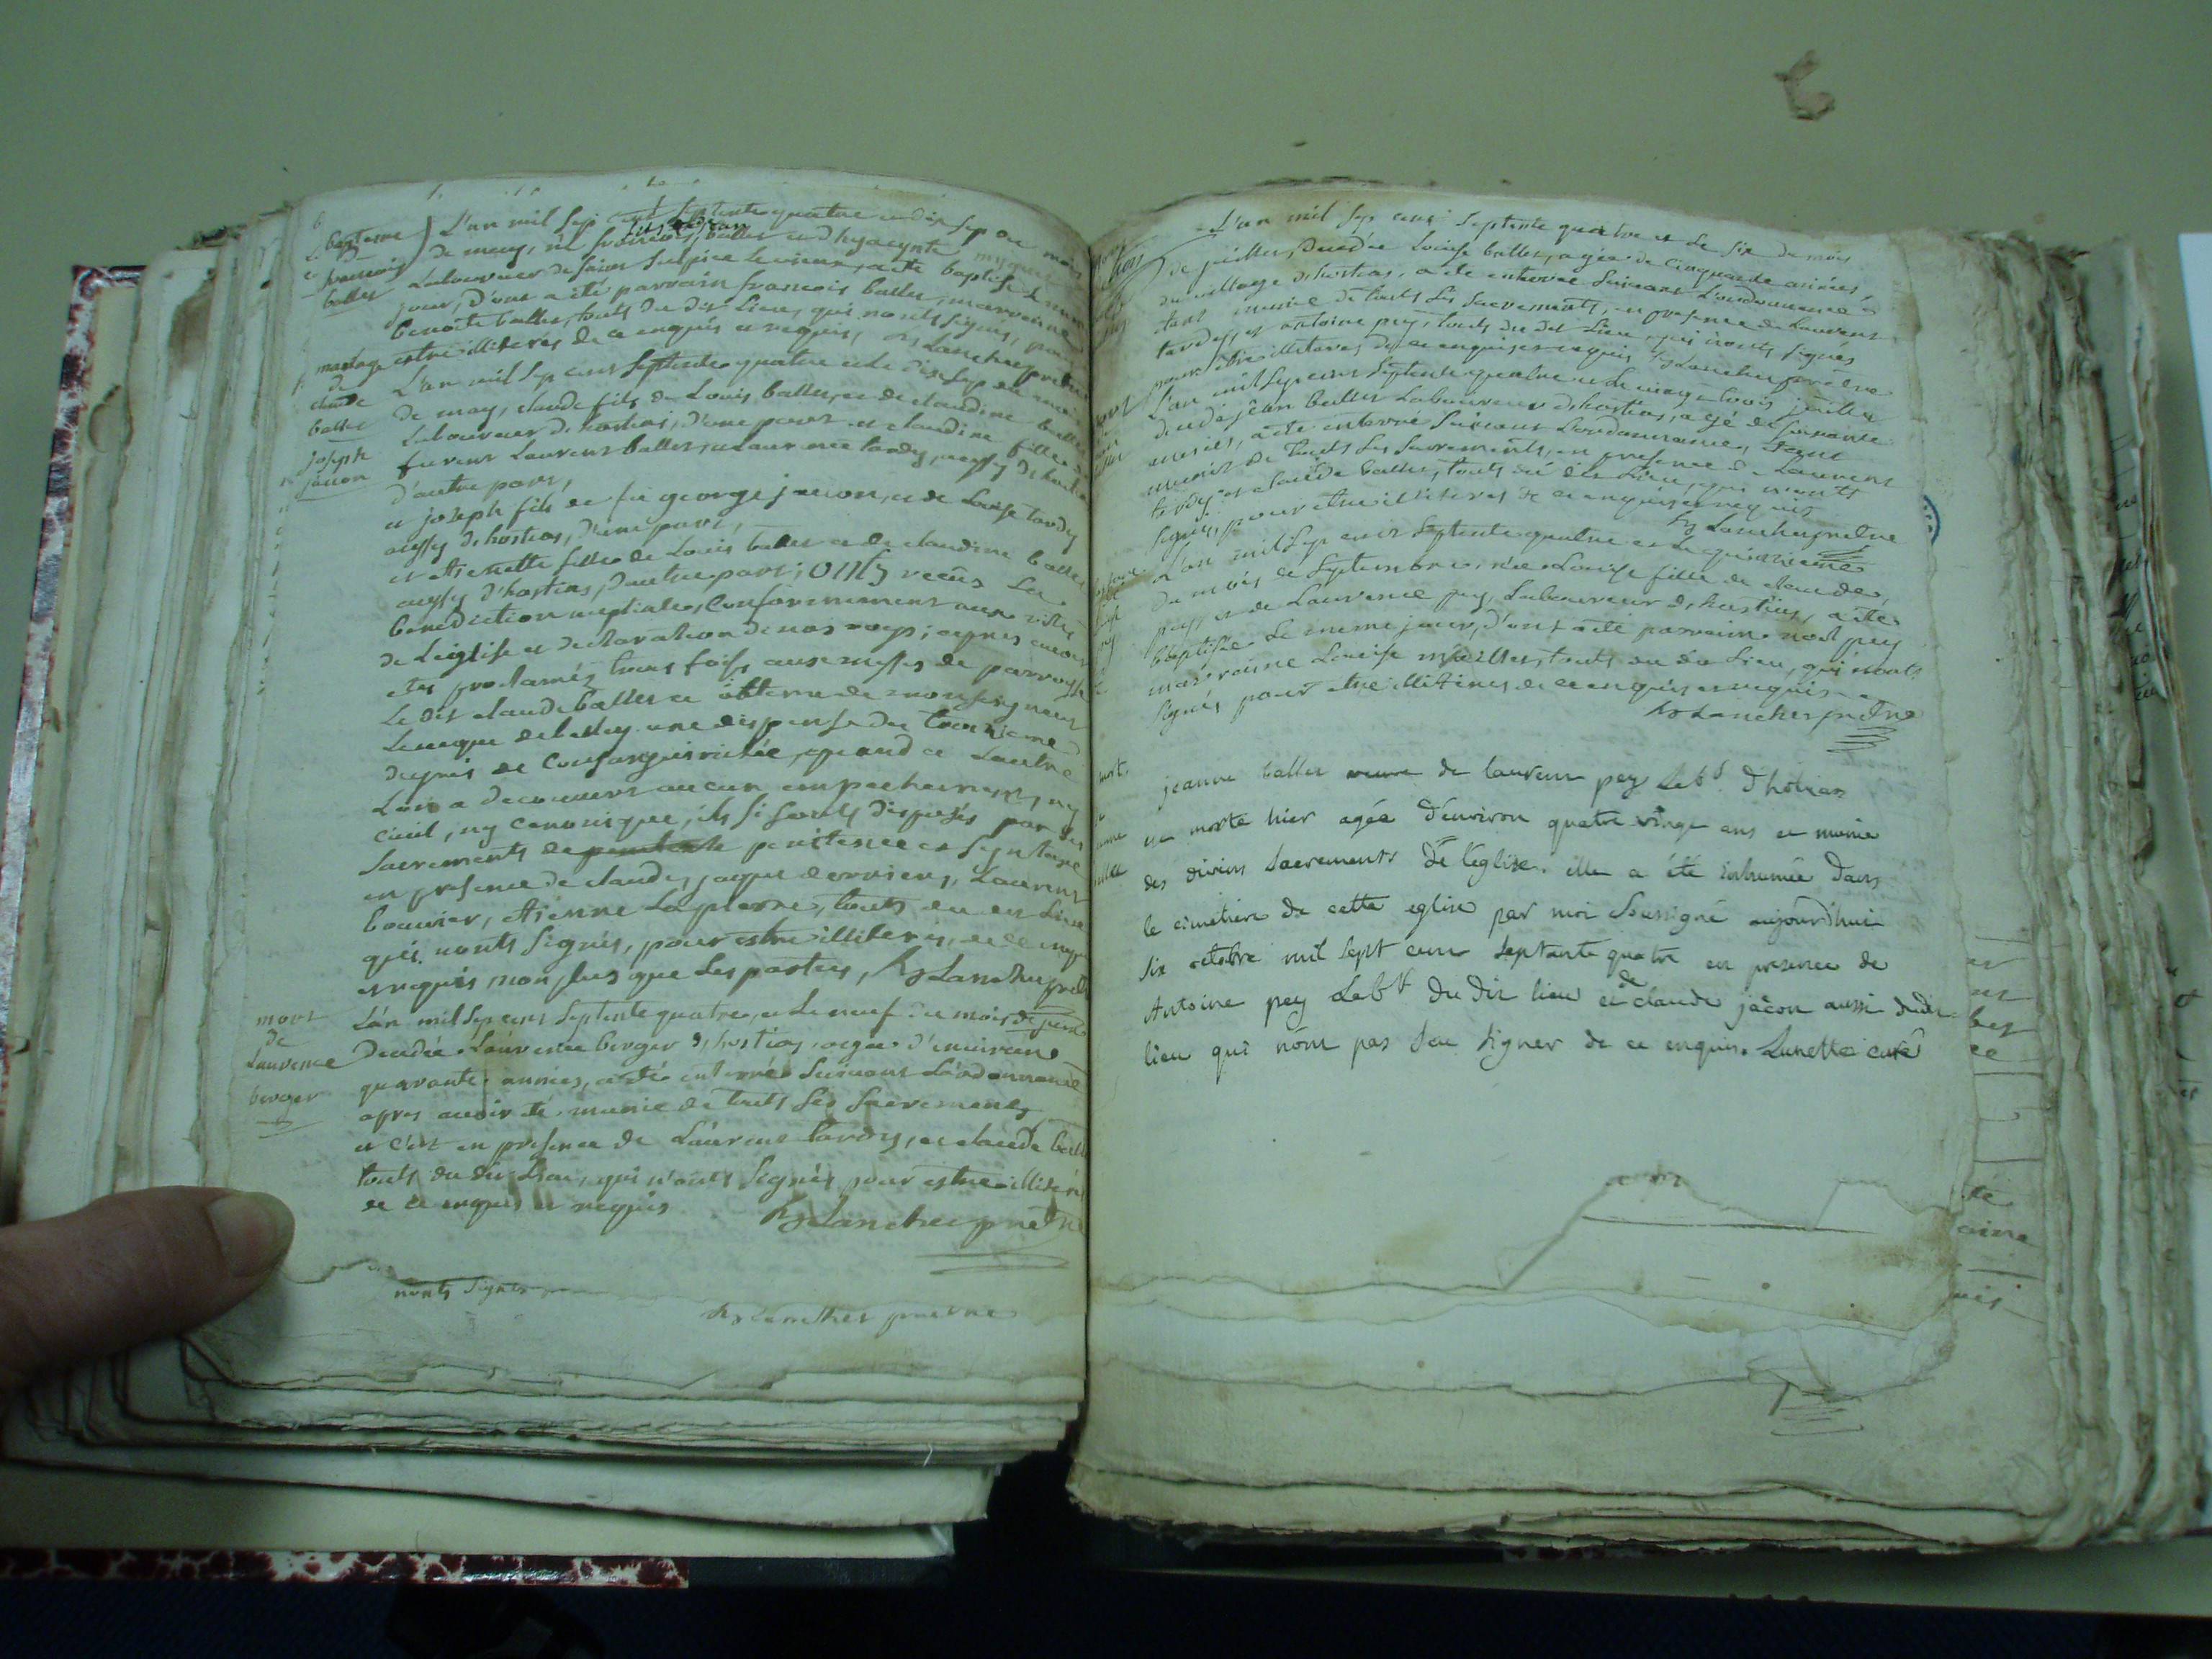 bapteme
de
francois
ballet
L'an mil sept cent septente quatre et dix sept du mois
de may, né francois, fils de jean ballet et d'hyacynte
Laboureur de saint sulpice le vieux, a été baptisé le meme
jour, d'ont a été parrain francois ballet, marraine
benoite ballet, touts du dit Lieu, qui n'onts signés, pour
estre illiteres de ce enquis et requis, Lancher pretre
mariage
de
claude
ballet
joseph
jacon
L'an mil sept cent septente quatre et le dix sept du mois
de may, claude fils de Louis ballet, et de claudine ballet
Laboureur d'hostias, d'une part et claudine fille de
furent Laurent ballet, et Laurence tardy, aussy d'hostias
d'autre part,
et joseph fils de fu george jacon, et de Louise tardy
aussy d'hostias, d'une part,
et etienette fille de Louis ballet et de claudine ballet
aussy d'hostias, d'autre part; onts receus La
benediction nuptiale, Conformement aux rites
de L'eglise et declaration de nos roys; apres avoir
etes proclamés trois fois aux messes de parroisse
Le dit claude ballet a obtenu de monseigneur
Leveque de belley une dispense du troisieme
degrés de Consanguinitée, quand a Lautre
L'on a decouvert aucun empechement, ny
civil, ny canonique, ils si sonts disposés par les
sacrements de penitence et synteresse
en presence de claude, jacque derriers, Laurent
bouvier, etienne Lapierre, touts du dit Lieu
qui n'onts signés, pour estre illiteres, de ce enquis
et requis non plus que les parties, Lancher pretre
mort
de
Laurence
berger
L'an mil sept cent septente quatre, et Le neuf du mois de juin
decedée Laurence berger d'hostias agée d'environ
quarante années, a été enterrée suivant L'ordonnance
apres avoir été munie de touts ses sacrements
et c'est en presence de Laurent tardy, et claude ballet
touts du dit Lieu, qui n'onts signés pour estre illiteres
de ce enquis et requis Lancher pretre
n'onts signés
Lancher pretre
L'an mil sept cent septente quatre et Le six du mois
de juillet, decedée Louise ballet, agée de Cinquante années,
du village d'hostias, a été enterrée suivant L'ordonnance
etant munie de touts ses sacrements, en presence de Laurent
tardy, et antoine pey, touts du dit Lieu, qui n'onts signés
pour estre illiteres de ce enquis et requis Lancher pretre
L'an mil sept cent septente quatre et Le vingt trois juillet
decedé jean ballet Laboureur d'hostias, agé de soixante
années, a été enterré suivant L'ordonnance, etant
munis de touts ses sacrements, en presence de Laurent
tardy et claude ballet, touts du dit Lieu, qui n'onts
signés, pour etre illiteres de ce enquis et requis
Lancher pretre
L'an mil sept cent septente quatre et le quinzieme
du mois de septembre, née Louise fille de claude
pey, et de Laurence pey, Laboureur d'hostias, a été
baptisée Le meme jour, d'ont a été parrain noel pey
marraine Louise millet, touts du dit Lieu, qui n'onts
signés pour etre illiteres de ce enquis et requis
Lancher pretre
mort
jeanne ballet veuve de laurent pey Labr. d'hotias
est morte hier agée d'environ quatre vingt ans et munie
des divins sacrements de l'église. elle a été inhumée dans
le cimetière de cette eglise par moi soussigné aujourd'hui
six octobre mil sept cent septante quatre en presence de
Antoine pey Labr du dit lieu et de claude jacon aussi dudit
lieu qui n'ont pas seu signer de ce enquis. Lunette curé